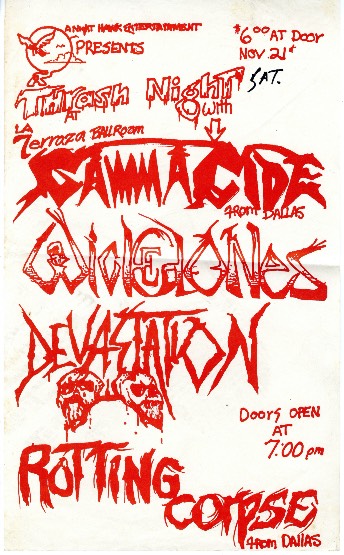 A NIGHT HAWK ENTERTAINMENT
PRESENTS
$6.00 AT DOOR
NOV 21st
SAT.
A
Thrash Night
AT
with
LA
Terraza BALLROOM
GAMMACIDE
FROM DALLAS
DEVASTATION
DOORS OPEN
AT
7:00 pm
ROTTING
CORPSE
FROM DALLAS